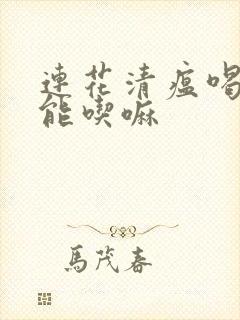 連花清瘟喝
能喫嘛
馬茂春